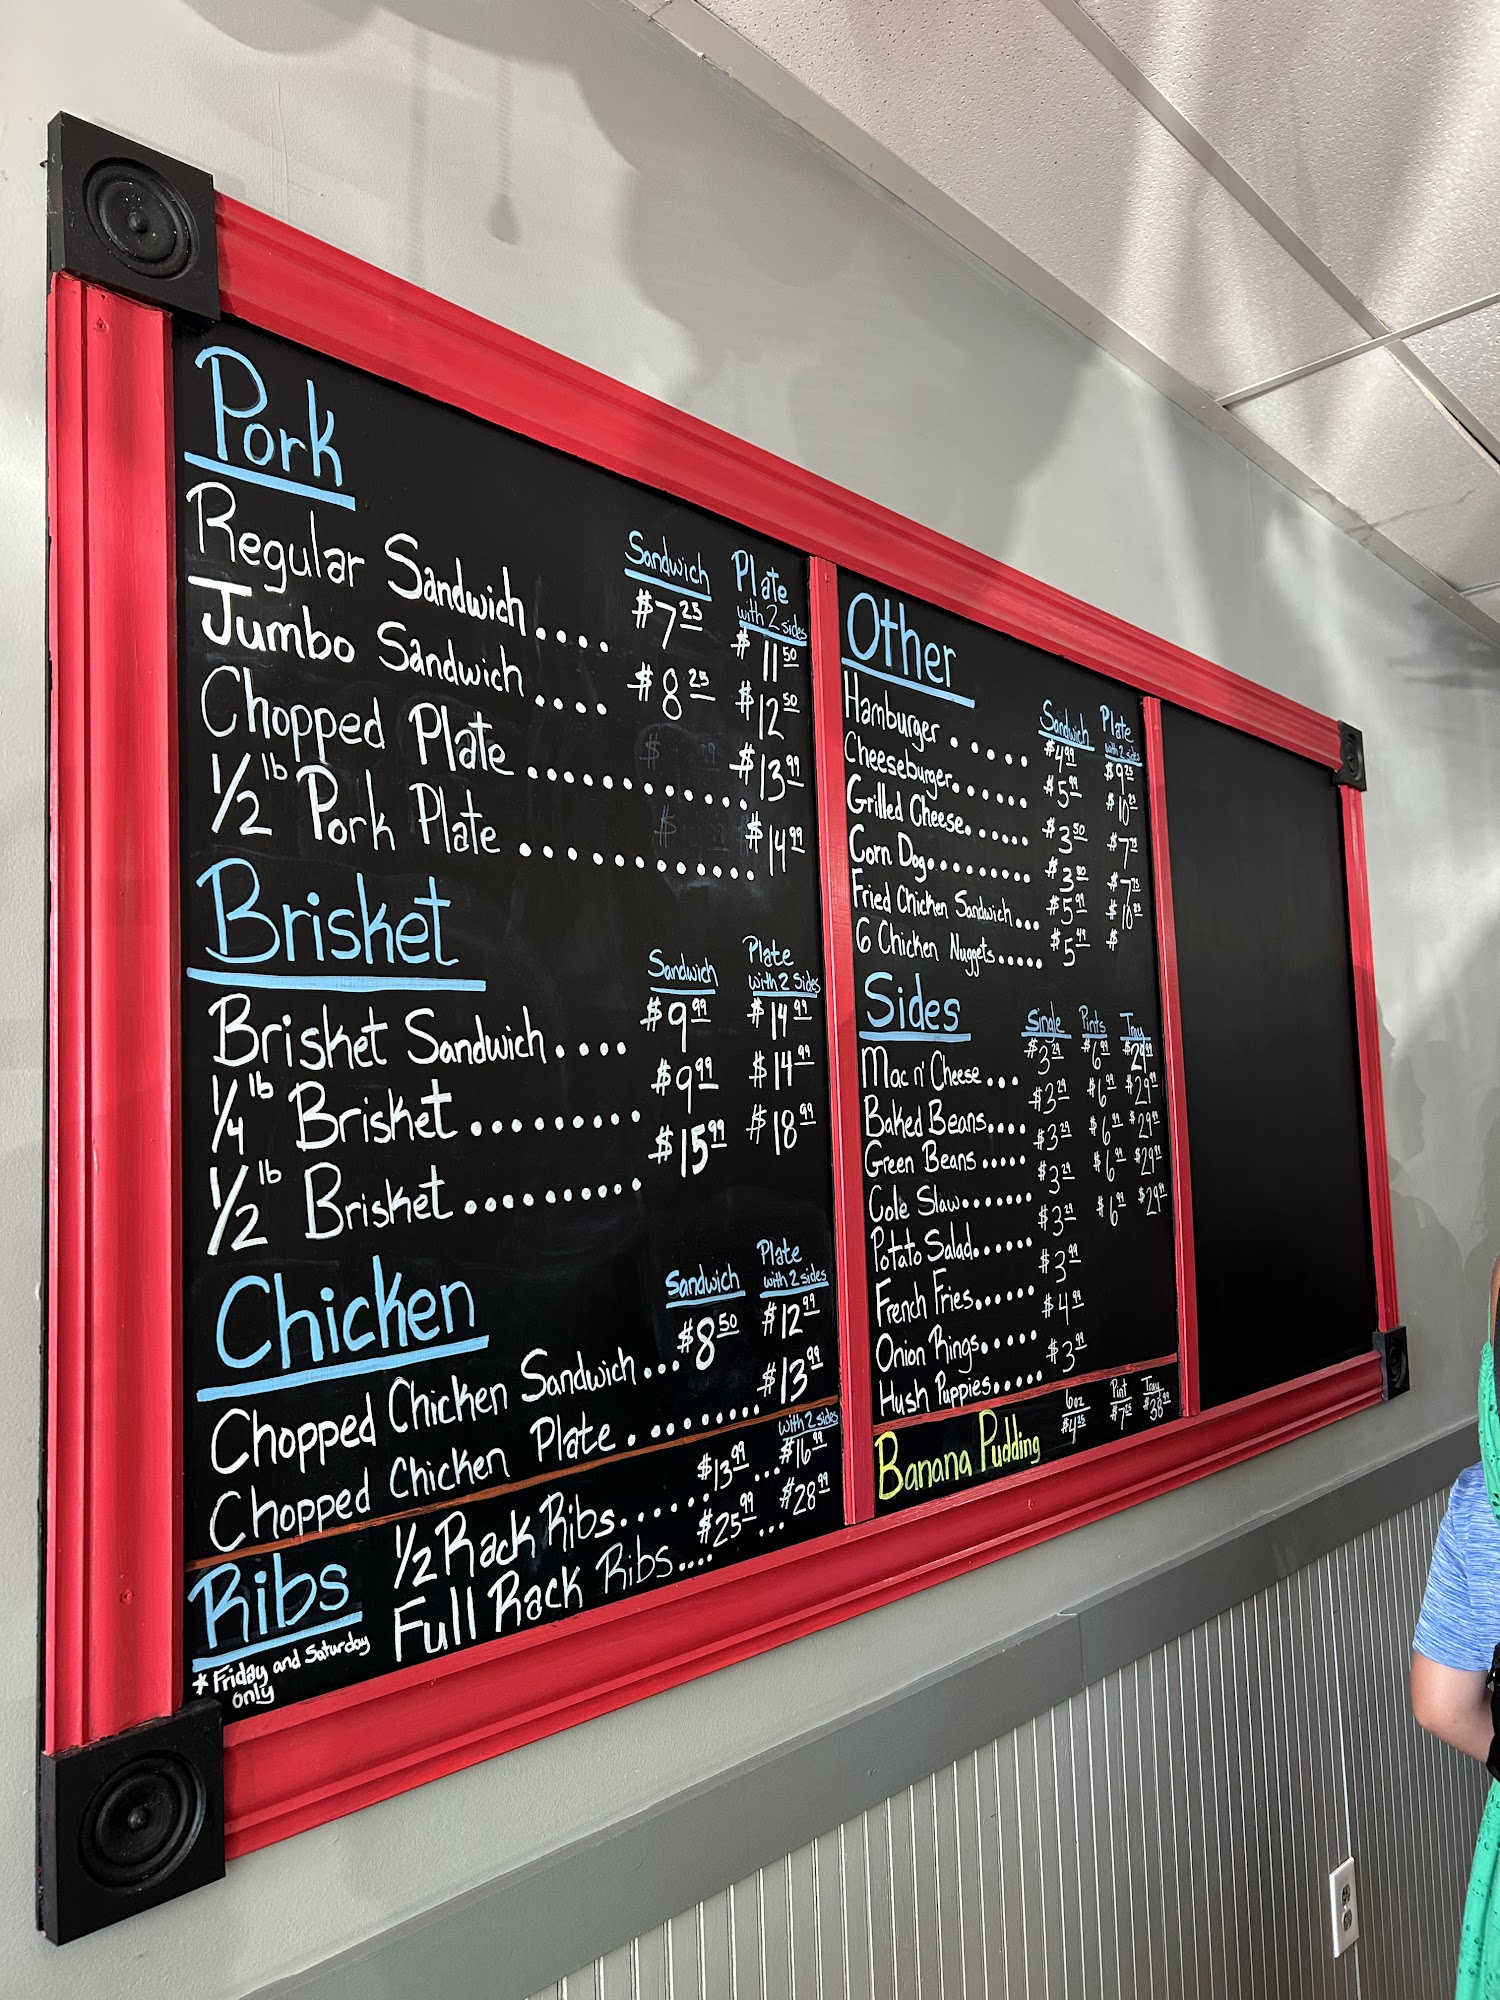 Pork
Sandwich Plate
with 2 sides
Regular Sandwich.... $7 25 $11 50
Jumbo Sandwich.... $8 25 $12 50
Chopped Plate............ $13 99
1/2 lb Pork Plate............ $14 99
Brisket
Sandwich Plate
with 2 Sides
Brisket Sandwich.... $9 99 $14 99
1/4 lb Brisket......... $9 99 $14 99
1/2 lb Brisket.......... $15 99 $18 99
Chicken
Sandwich Plate
with 2 sides
Chopped Chicken Sandwich... $8 50 $12 99
Chopped Chicken Plate......... $13 99
with 2 sides
Ribs
1/2 Rack Ribs...... $13 99 ... $16 99
Full Rack Ribs.... $25 99 ... $28 99
* Friday and Saturday
only
Other
Sandwich Plate
with 2 sides
Hamburger ..... $4 99 $9 25
Cheeseburger....... $5 99 $10 25
Grilled Cheese...... $3 50 $7 75
Corn Dog......... $3 50 $7 75
Fried Chicken Sandwich... $5 99 $10 25
6 Chicken Nuggets..... $5 49 $
Sides
Single Pints Tray
Mac n' Cheese... $3 29 $6 99 $29 99
Baked Beans.... $3 29 $6 99 $29 99
Green Beans..... $3 29 $6 99 $29 99
Cole Slaw....... $3 29 $6 99 $29 99
Potato Salad...... $3 29 $6 99 $29 99
French Fries...... $3 99
Onion Rings..... $4 99
Hush Puppies..... $3 99
6oz Pint Tray
Banana Pudding $4 25 $7 25 $38 99